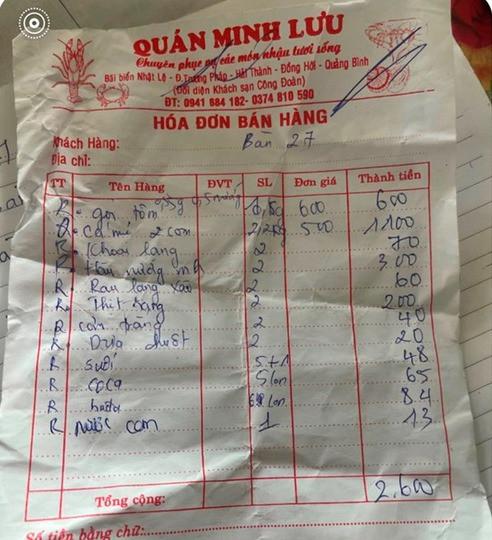 QUÁN MINH LƯU
Chuyên phục vụ các món nhậu tươi sống
Bãi biển Nhật Lệ - Đ.Trương Pháp - Hải Thành - Đồng Hới - Quảng Bình
(Đối diện Khách sạn Công Đoàn)
ĐT: 0941 684 182- 0374 810 590
HÓA ĐƠN BÁN HÀNG
Khách Hàng: Bàn 27
Địa chỉ:
TT Tên Hàng ĐVT SL Đơn giá Thành tiền
R gỏi tôm 600 600
R cá mú 2 con 2,2kg 500 1100
R Khoai lang 2 70
R Hàu nướng mh 2 300
R Rau lang xào 2 60
R Thịt rang 2 200
R cơm trắng 2 40
R Dưa chuột 2 20
R suối 5+1 48
R coca 5lon 65
R lon 84
R nước cam 1 13
Tổng cộng: 2.600
Số tiền bằng chữ: